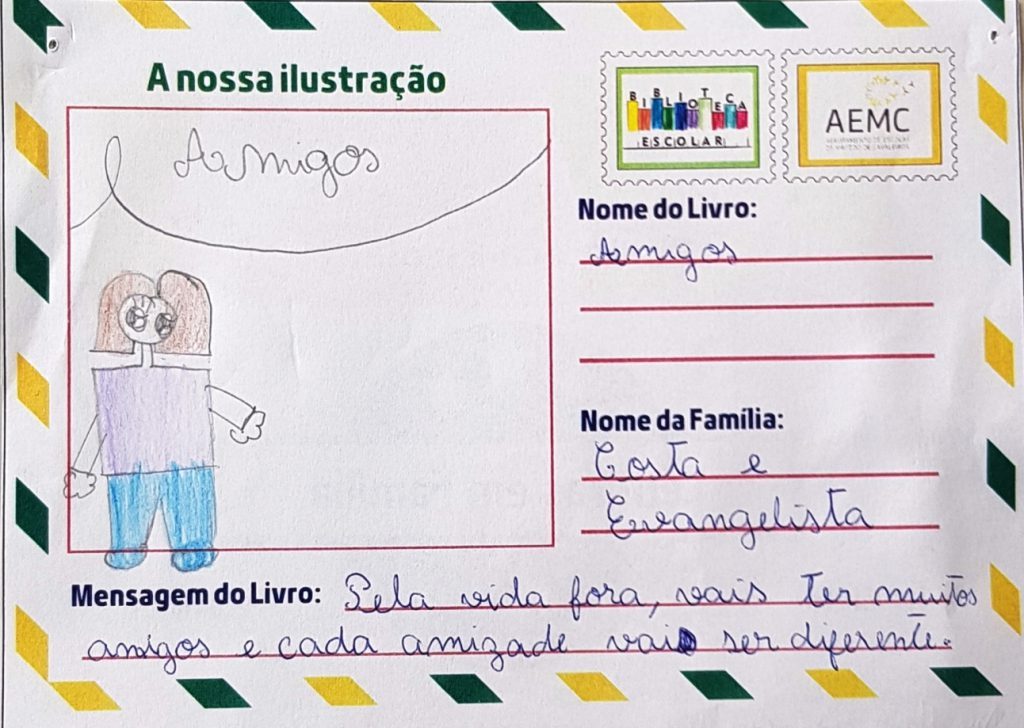 A nossa ilustração
BIBLIOTECA
ESCOLAR
AEMC
Amigos
Nome do Livro:
Amigos
Nome da Família:
Costa e
Evangelista
Mensagem do Livro: Pela vida fora, vais ter muitos
amigos e cada amizade vai ser diferente.